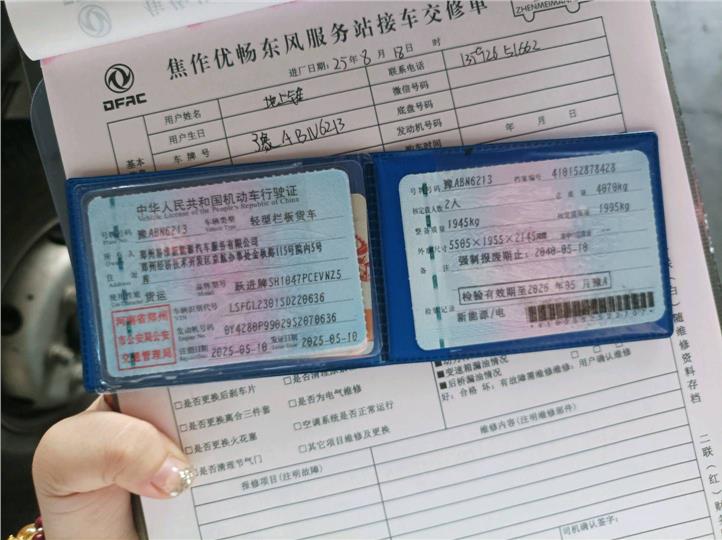 ZHENMEIMAN
焦作优畅东风服务站接车交修单
DFAC
进厂日期: 25年 8月 18日 时
用户姓名
联系电话
用户生日
微信号码
车牌号 豫ABN6213
底盘号码
发动机号码
购车时间 年 月 日
基本
中华人民共和国机动车行驶证
Vehicle License of the People's Republic of China
号牌号码 豫ABN6213 车辆类型 轻型栏板货车
Plate No. Vehicle Type
所有人
住址
使用性质 货运
Use Character
品牌型号 跃进牌SH1047PCEVNZ5
车辆识别代号
VIN
LSFGL2301SD220636
发动机号码 0Y4280P99029S2070636
注册日期 2025-05-10 发证日期 2025-05-10
河南省郑州
市公安局公安
交通管理局
号牌号码 豫ABN6213 档案编号 410152878428
核定载人数 2人 总质量 4070kg
整备质量 1945kg 核定载质量 1995kg
外廓尺寸 5505×1955×2145mm
备注 强制报废期止: 2040-05-10
检验有效期至2026年05月豫A
检验记录
新能源/电
□是否更换后刹车片
□是否更换离合三件套
□是否更换火花塞
□是否清理节气门
□是否为电气维修
□空调系统是否正常运行
□其它项目维修及更换
■变速箱漏油情况
■后桥漏油情况
好: 合格 坏: 有故障需维修维用: 用户确认维修
报修项目(注明故障)
维修内容(注明维修部件)
司机确认签字:
随维修资料存档
二联(红)